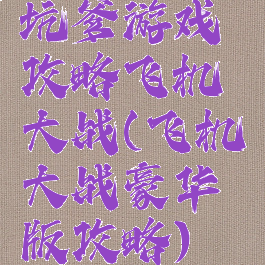 坑爹游戏
攻略飞机
大战(飞机
大战豪华
版攻略)